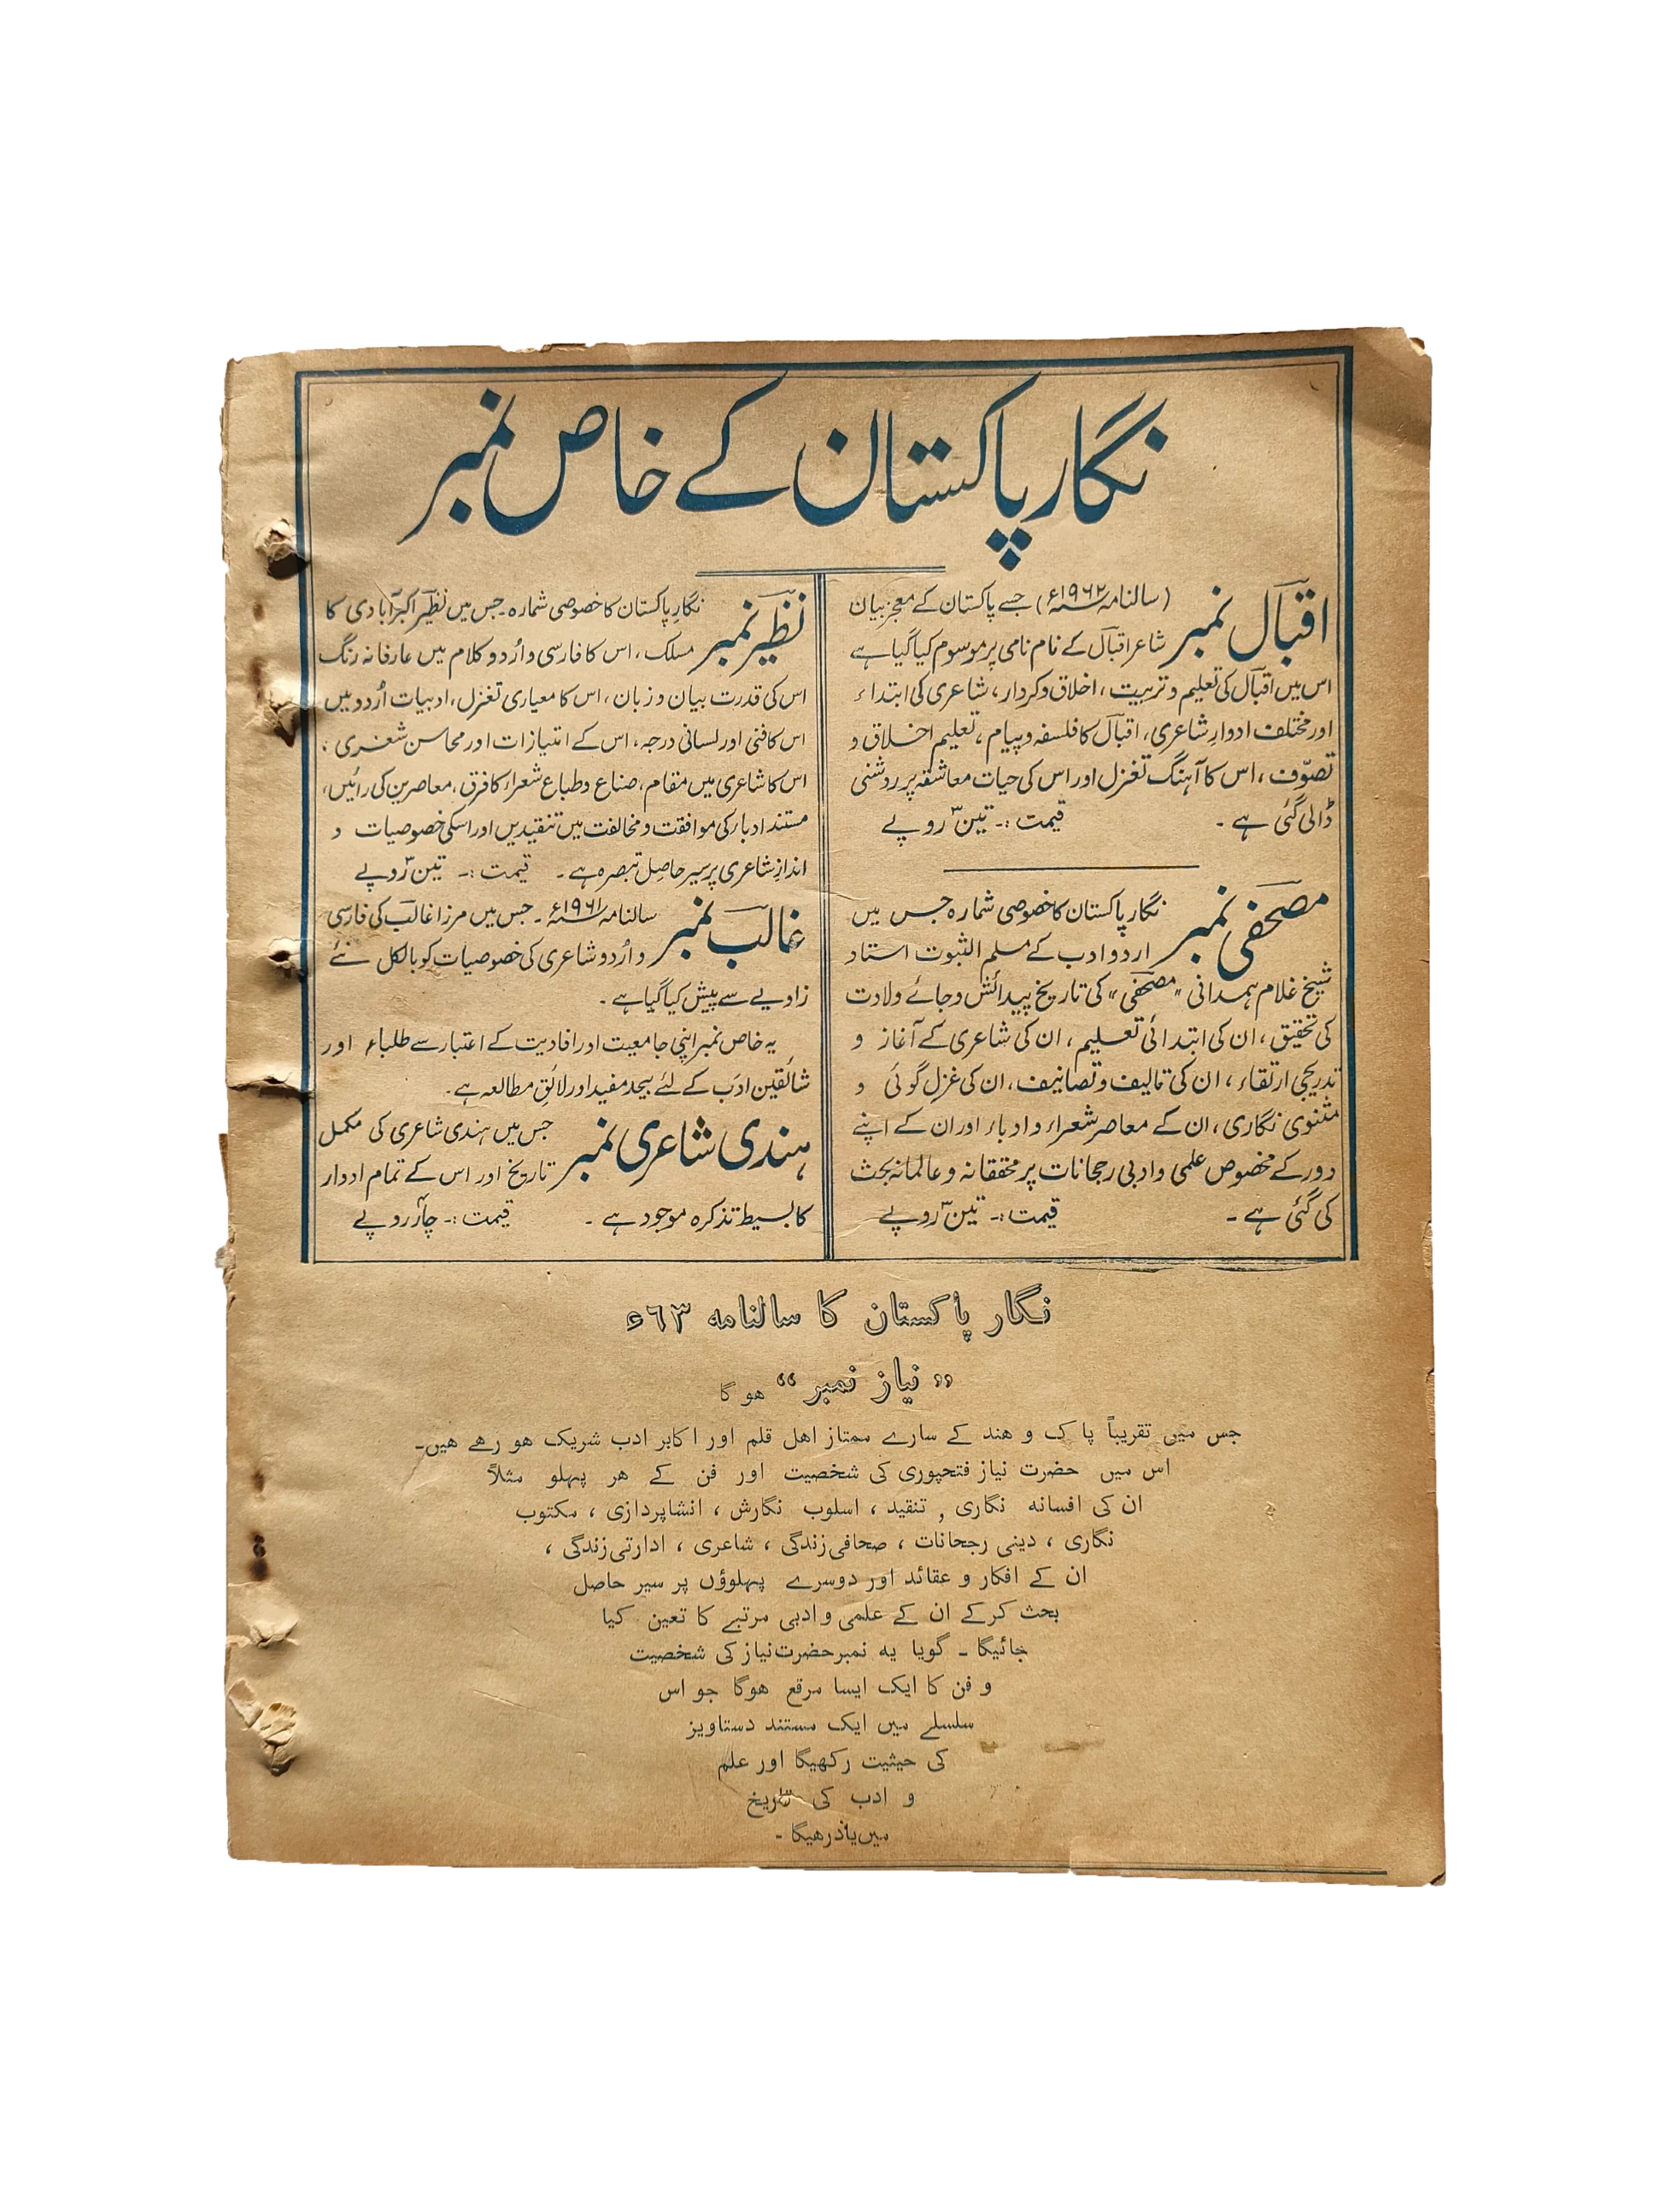 نگار پاکستان کے خاص نمبر
اقبال نمبر
(سالنامہ ۱۹۶۲ء) جسے پاکستان کے معجز بیان
شاعر اقبال کے نام نامی پر موسوم کیا گیا ہے
اس میں اقبال کی تعلیم و تربیت، اخلاق و کردار، شاعری کی ابتداء
اور مختلف ادوارِ شاعری، اقبال کا فلسفہ و پیام، تعلیم اخلاق و
تصوّف، اس کا آہنگ تغزل اور اس کی حیات معاشقہ پر روشنی
ڈالی گئی ہے ۔ قیمت :۔ تین۳ روپے
مصحفی نمبر
نگار پاکستان کا خصوصی شمارہ جس میں
اردو ادب کے مسلم الثبوت استاد
شیخ غلام ہمدانی "مصحفی" کی تاریخ پیدائش و جائے ولادت
کی تحقیق، ان کی ابتدائی تعلیم، ان کی شاعری کے آغاز و
تدریجی ارتقاء، ان کی تالیف و تصانیف، ان کی غزل گوئی و
مثنوی نگاری، ان کے معاصر شعراء و ادباء اور ان کے اپنے
دور کے مخصوص علمی و ادبی رجحانات پر محققانہ و عالمانہ بحث
کی گئی ہے ۔ قیمت :۔ تین۳ روپے
نظیر نمبر
نگارِ پاکستان کا خصوصی شمارہ ۔ جس میں نظیر اکبرآبادی کا
مسلک، اس کا فارسی و اُردو کلام میں عارفانہ رنگ
اس کی قدرت بیان و زبان، اس کا معیاری تغزل، ادبیات اُردو میں
اس کا فنی اور لسانی درجہ، اس کے امتیازات اور محاسن شعری،
اس کا شاعری میں مقام، صناع و طباع شعراء کا فرق، معاصرین کی رائیں،
مستند ادباء کی موافقت و مخالفت میں تنقیدیں اور اسکی خصوصیات و
اندازِ شاعری پر سیر حاصل تبصرہ ہے ۔ قیمت :۔ تین۳ روپے
غالب نمبر
سالنامہ ۱۹۶۱ء ۔ جس میں مرزا غالب کی فارسی
و اُردو شاعری کی خصوصیات کو بالکل نئے
زاویے سے پیش کیا گیا ہے ۔
یہ خاص نمبر اپنی جامعیت اور افادیت کے اعتبار سے طلباء اور
شائقین ادب کے لئے بیحد مفید اور لائقِ مطالعہ ہے ۔
ہندی شاعری نمبر
جس میں ہندی شاعری کی مکمل
تاریخ اور اس کے تمام ادوار
کا بسیط تذکرہ موجود ہے ۔ قیمت :۔ چار۴ روپے
نگار پاکستان کا سالنامہ ۶۳ء
" نیاز نمبر " ہوگا
جس میں تقریباً پاک و ہند کے سارے ممتاز اہل قلم اور اکابر ادب شریک ہو رہے ہیں ۔
اس میں حضرت نیاز فتحپوری کی شخصیت اور فن کے ہر پہلو مثلاً
ان کی افسانہ نگاری , تنقید ، اسلوب نگارش ، انشاپردازی ، مکتوب
نگاری ، دینی رجحانات ، صحافی زندگی ، شاعری ، ادارتی زندگی ،
ان کے افکار و عقائد اور دوسرے پہلوؤں پر سیر حاصل
بحث کرکے ان کے علمی و ادبی مرتبے کا تعین کیا
جائیگا ۔ گویا یہ نمبر حضرت نیاز کی شخصیت
و فن کا ایک ایسا مرقع ہوگا جو اس
سلسلے میں ایک مستند دستاویز
کی حیثیت رکھیگا اور علم
و ادب کی تاریخ
میں یادرہیگا ۔